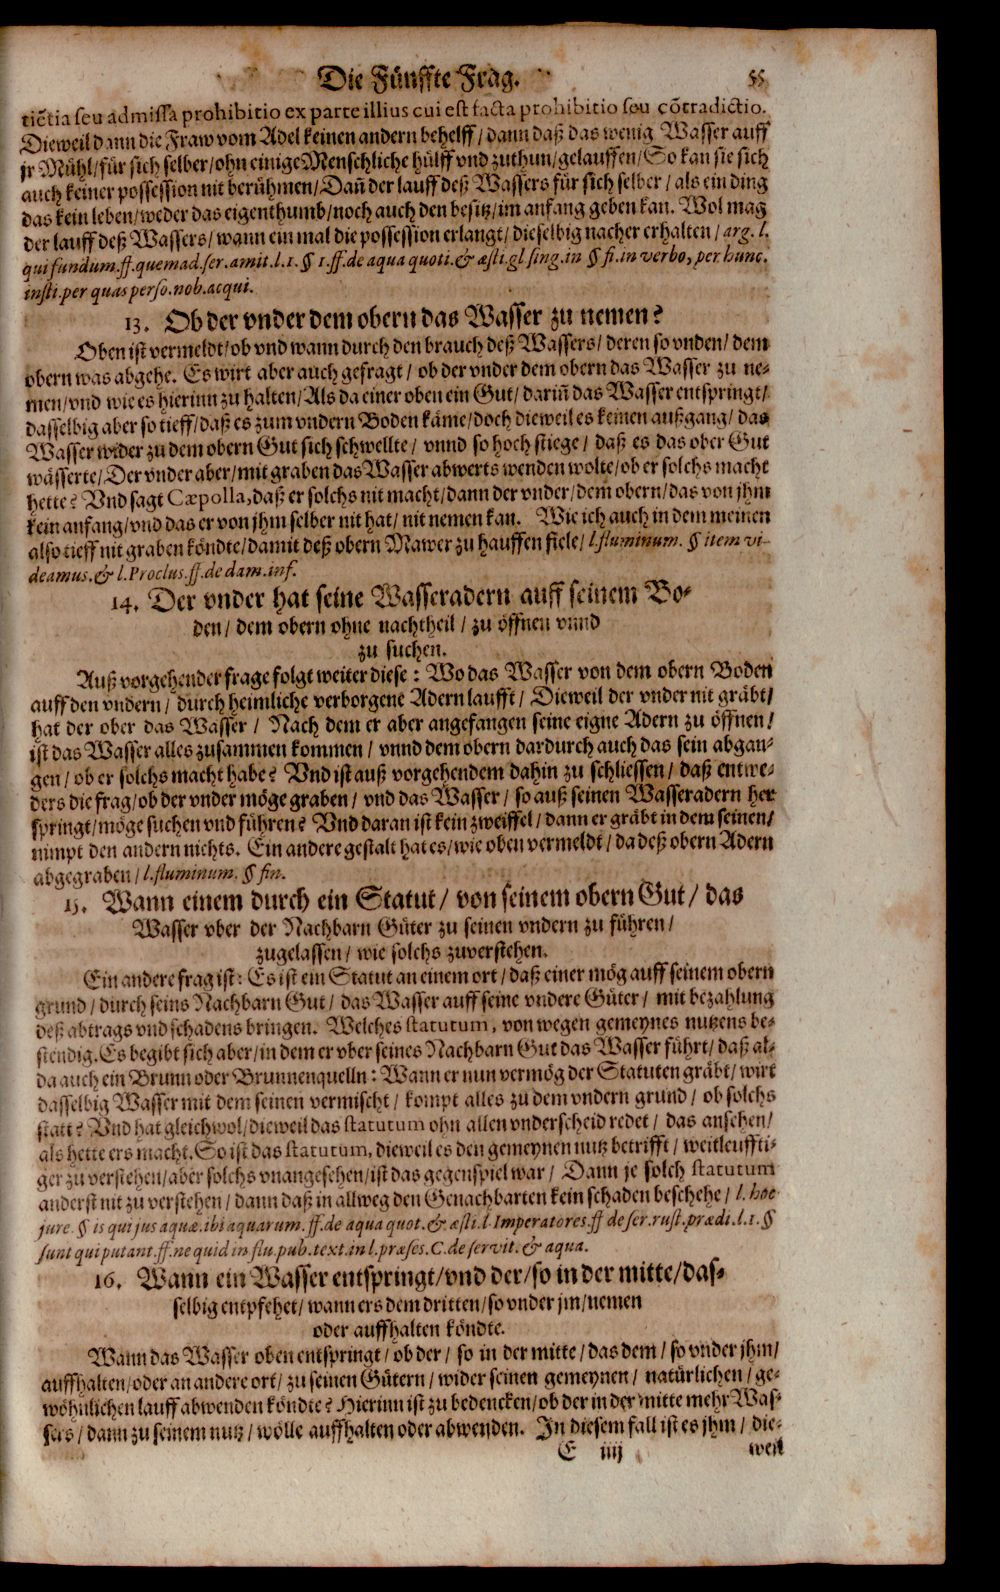 Die Fünffte Frag. 55
tiẽtia seu admissa prohibitio ex parte illius cui est facta prohibitio seu cõtradictio.
Dieweil dann die Fraw vom Adel keinen andern behelff / dann daß das wenig Wasser auff
jr Mühl / für sich selber / ohn einige Menschliche hülff vnd zuthun / gelauffen / So kan sie sich
auch keiner possession nit berühmen / Dañ der lauff deß Wassers für sich selber / als ein ding
das kein leben / weder das eigenthumb / noch auch den besitz / im anfang geben kan. Wol mag
der lauff deß Wassers / wann ein mal die possession erlangt / dieselbig nacher erhalten / arg. l.
qui fundum. ff. quemad. ser. amit. l. 1. § 1. ff. de aqua quoti. & æsti. gl sing. in § fi. in verbo, per hunc.
insti. per quas perso. nob. acqui.
13. Ob der vnder dem obern das Wasser zu nemen?
Oben ist vermeldt / ob vnd wann durch den brauch deß Wassers / deren so vnden / dem
obern was abgehe. Es wirt aber auch gefragt / ob der vnder dem obern das Wasser zu ne-
men / vnd wie es hierinn zu halten / Als da einer oben ein Gut / dariñ das Wasser entspringt /
dasselbig aber so tieff / daß es zum vndern Boden käme / doch dieweil es keinen außgang / das
Wasser wider zu dem obern Gut sich schwellte / vnnd so hoch stiege / daß es das ober Gut
wässerte / Der vnder aber / mit graben das Wasser abwerts wenden wolte / ob er solchs macht
hette? Vnd sagt Cæpolla, daß er solchs nit macht / dann der vnder / dem obern / das von jhm
kein anfang / vnd das er von jhm selber nit hat / nit nemen kan. Wie ich auch in dem meinen
also tieff nit graben köndte / damit deß obern Mawer zu hauffen fiele / l. fluminum. § item vi-
deamus. & l. Proclus. ff. de dam. inf.
14. Der vnder hat seine Wasseradern auff seinem Bo-
den / dem obern ohne nachtheil / zu öffnen vnnd
zu suchen.
Auß vorgehender frage folgt weiter diese: Wo das Wasser von dem obern Boden
auff den vndern / durch heimliche verborgene Adern laufft / Dieweil der vnder nit gräbt /
hat der ober das Wasser / Nach dem er aber angefangen seine eigne Adern zu öffnen /
ist das Wasser alles zusammen kommen / vnnd dem obern dardurch auch das sein abgan-
gen / ob er solchs macht habe? Vnd ist auß vorgehendem dahin zu schliessen / daß entwe-
ders die frag / ob der vnder möge graben / vnd das Wasser / so auß seinen Wasseradern her
springt / möge suchen vnd führen? Vnd daran ist kein zweiffel / dann er gräbt in dem seinen /
nimpt den andern nichts. Ein andere gestalt hat es / wie oben vermeldt / da deß obern Adern
abgegraben / l. fluminum. § fin.
15. Wann einem durch ein Statut / von seinem obern Gut / das
Wasser vber der Nachbarn Güter zu seinen vndern zu führen /
zugelassen / wie solchs zuverstehen.
Ein andere frag ist: Es ist ein Statut an einem ort / daß einer mög auff seinem obern
grund / durch seins Nachbarn Gut / das Wasser auff seine vndere Güter / mit bezahlung
deß abtrags vnd schadens bringen. Welches statutum, von wegen gemeynes nutzens be-
stendig. Es begibt sich aber / in dem er vber seines Nachbarn Gut das Wasser führt / daß al-
da auch ein Brunn oder Brunnenquelln: Wann er nun vermög der Statuten gräbt / wirt
dasselbig Wasser mit dem seinen vermischt / kompt alles zu dem vndern grund / ob solchs
statt? Vnd hat gleichwol / dieweil das statutum ohn allen vnderscheid redet / das ansehen /
als hette ers macht. So ist das statutum, dieweil es den gemeynen nutz betrifft / weitleuffti-
ger zu verstehen / aber solchs vnangesehen / ist das gegenspiel war / Dann je solch statutum
anderst nit zu verstehen / dann daß in allweg den Genachbarten kein schaden beschehe / l. hoc
jure. § is qui jus aquæ. ibi aquarum. ff. de aqua quot. & æsti. l. Imperatores. ff de ser. rust. prædi. l. 1. §
sunt qui putant. ff. ne quid in flu. pub. text. in l. præses. C. de servit. & aqua.
16. Wann ein Wasser entspringt / vnd der / so in der mitte / das-
selbig entpfehet / wann ers dem dritten / so vnder jm / nemen
oder auffhalten köndte.
Wann das Wasser oben entspringt / ob der / so in der mitte / das dem / so vnder jhm /
auffhalten / oder an andere ort / zu seinen Gütern / wider seinen gemeynen / natürlichen / ge-
wöhnlichen lauff abwenden köndte? Hierinn ist zu bedencken / ob der in der mitte mehr Was-
sers / dann zu seinem nutz / wölle auffhalten oder abwenden. In diesem fall ist es jhm / die-
E iiij weil